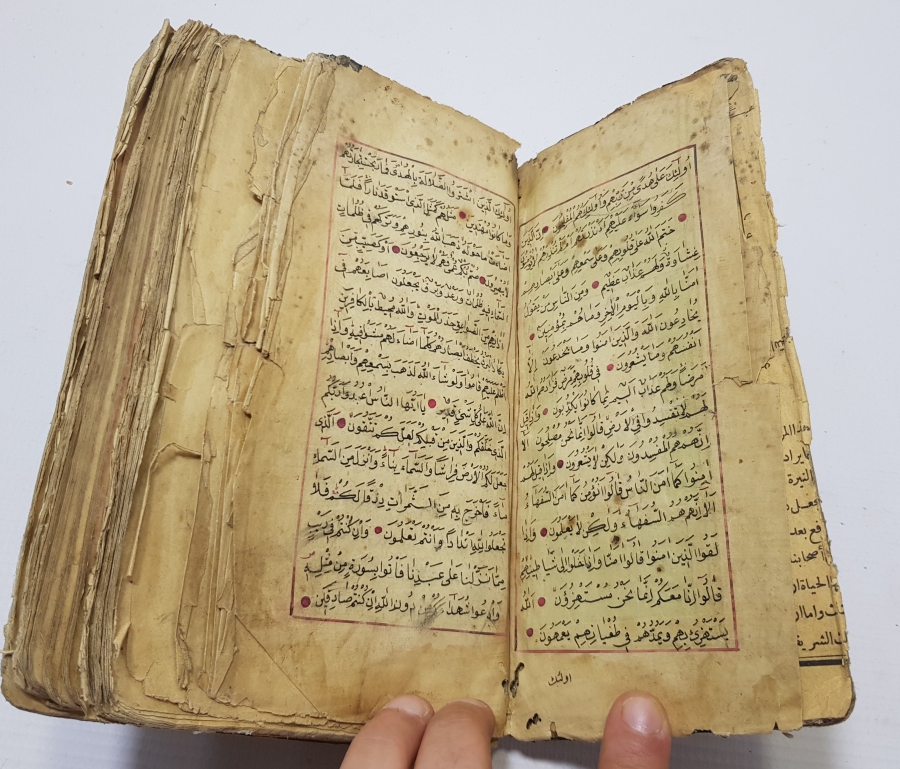 اولئك على هدى من ربهم واولئك هم المفلحون ان الذين
كفروا سواء عليهم ءانذرتهم ام لم تنذرهم لا يؤمنون
ختم الله على قلوبهم وعلى سمعهم وعلى ابصارهم
غشاوة ولهم عذاب عظيم ومن الناس من يقول
امنا بالله وباليوم الاخر وما هم بمؤمنين
يخادعون الله والذين امنوا وما يخدعون الا
انفسهم وما يشعرون في قلوبهم مرض فزادهم الله
مرضا ولهم عذاب اليم بما كانوا يكذبون واذا قيل
لهم لا تفسدوا في الارض قالوا انما نحن مصلحون الا
انهم هم المفسدون ولكن لا يشعرون واذا قيل لهم
امنوا كما امن الناس قالوا انؤمن كما امن السفهاء
الا انهم هم السفهاء ولكن لا يعلمون واذا
لقوا الذين امنوا قالوا امنا واذا خلوا الى شياطينهم
قالوا انا معكم انما نحن مستهزؤن الله
يستهزئ بهم ويمدهم في طغيانهم يعمهون
اولئك
اولئك الذين اشتروا الضلالة بالهدى فما ربحت تجارتهم
وما كانوا مهتدين مثلهم كمثل الذي استوقد نارا فلما
اضاءت ما حوله ذهب الله بنورهم وتركهم في ظلمات
لا يبصرون صم بكم عمي فهم لا يرجعون او كصيب من
السماء فيه ظلمات ورعد وبرق يجعلون اصابعهم في
اذانهم من الصواعق حذر الموت والله محيط بالكافرين
يكاد البرق يخطف ابصارهم كلما اضاء لهم مشوا فيه واذا
اظلم عليهم قاموا ولو شاء الله لذهب بسمعهم وابصارهم
ان الله على كل شيء قدير يا ايها الناس اعبدوا ربكم
الذي خلقكم والذين من قبلكم لعلكم تتقون الذي
جعل لكم الارض فراشا والسماء بناء وانزل من السماء
ماء فاخرج به من الثمرات رزقا لكم فلا
تجعلوا لله اندادا وانتم تعلمون وان كنتم في ريب
مما نزلنا على عبدنا فاتوا بسورة من مثله
وادعوا شهداءكم من دون الله ان كنتم صادقين